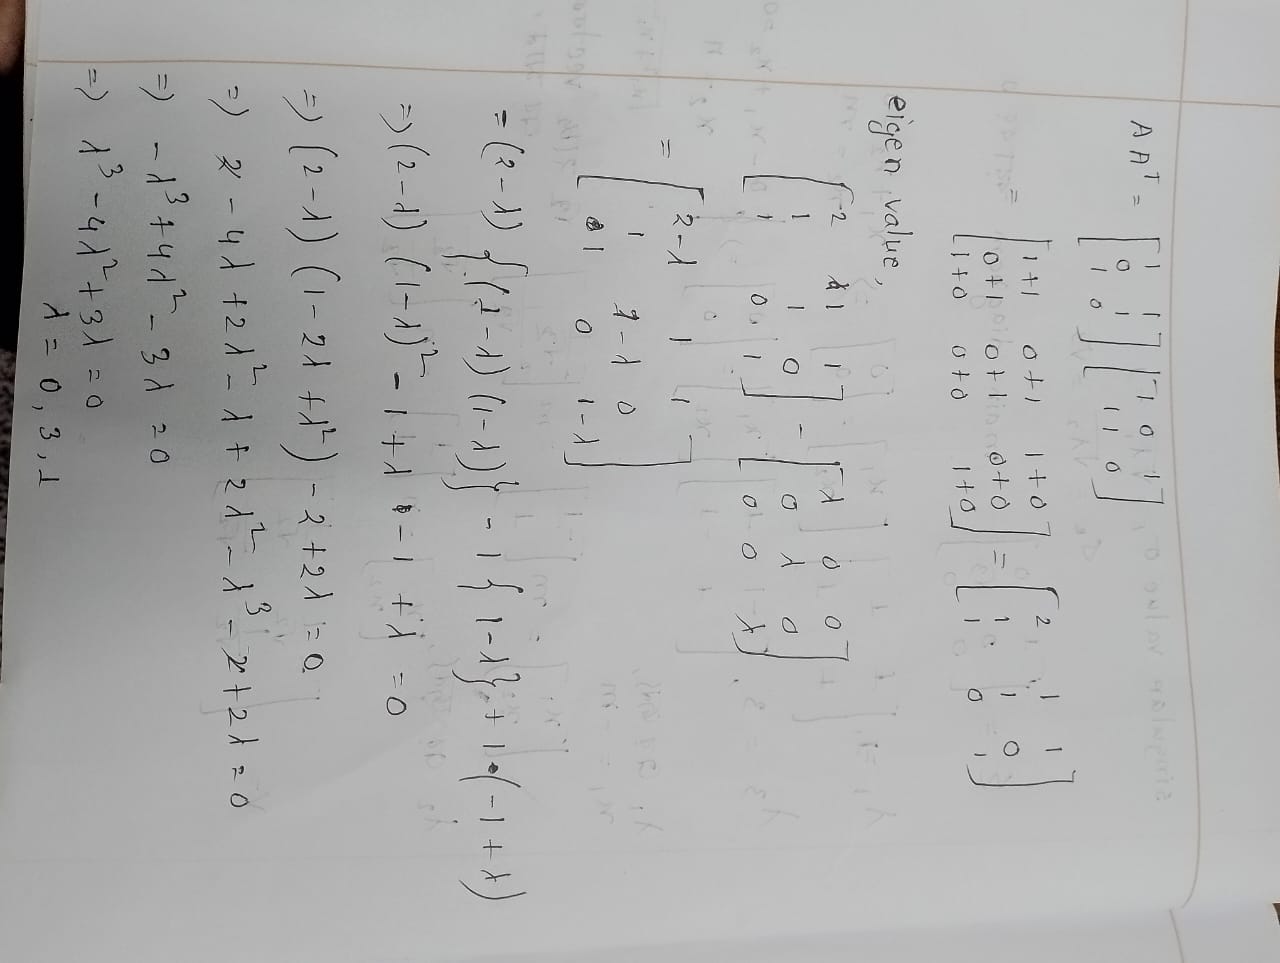 A Aᵀ = [1 1; 0 1; 1 0] [1 0 1; 1 1 0]
= [1+1 0+1 1+0; 0+1 0+1 0+0; 1+0 0+0 1+0] = [2 1 1; 1 1 0; 1 0 1]
eigen value,
[2 1 1; 1 1 0; 1 0 1] - [λ 0 0; 0 λ 0; 0 0 λ]
= [2-λ 1 1; 1 1-λ 0; 1 0 1-λ]
= (2-λ) {(1-λ)(1-λ)} - 1{1-λ} + 1·(-1+λ)
⇒ (2-λ)(1-λ)² - 1+λ - 1+λ = 0
⇒ (2-λ)(1-2λ+λ²) - 2+2λ = 0
⇒ 2 - 4λ + 2λ² - λ + 2λ² - λ³ - 2 + 2λ = 0
⇒ -λ³ + 4λ² - 3λ = 0
⇒ λ³ - 4λ² + 3λ = 0
λ = 0, 3, 1